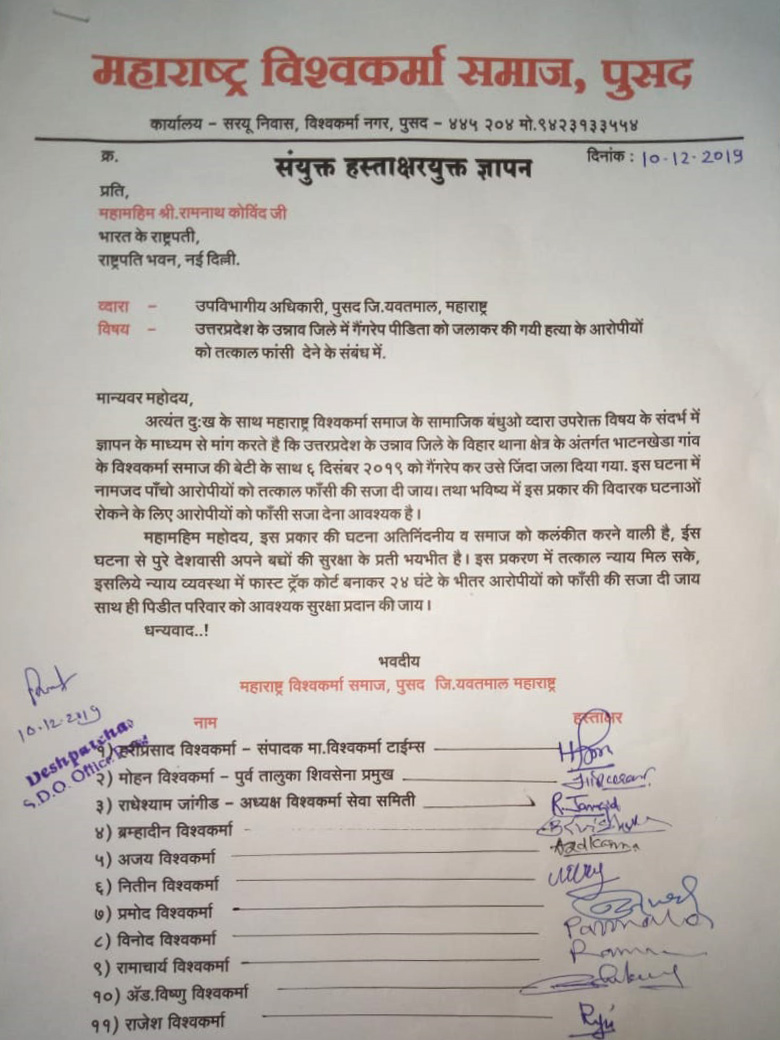 महाराष्ट्र विश्वकर्मा समाज, पुसद
कार्यालय – सरयू निवास, विश्वकर्मा नगर, पुसद – ४४५ २०४ मो.९४२३१३३५५४
क्र.
दिनांक : 10-12-2019
संयुक्त हस्ताक्षरयुक्त ज्ञापन
प्रति,
महामहिम श्री.रामनाथ कोविंद जी
भारत के राष्ट्रपती,
राष्ट्रपति भवन, नई दिल्ली.
व्दारा – उपविभागीय अधिकारी, पुसद जि.यवतमाल, महाराष्ट्र
विषय – उत्तरप्रदेश के उन्नाव जिले में गैंगरेप पीडिता को जलाकर की गयी हत्या के आरोपीयों
को तत्काल फांसी देने के संबंध में.
मान्यवर महोदय,
अत्यंत दुःख के साथ महाराष्ट्र विश्वकर्मा समाज के सामाजिक बंधुओ व्दारा उपरोक्त विषय के संदर्भ में
ज्ञापन के माध्यम से मांग करते है कि उत्तरप्रदेश के उन्नाव जिले के विहार थाना क्षेत्र के अंतर्गत भाटनखेडा गांव
के विश्वकर्मा समाज की बेटी के साथ ६ दिसंबर २०१९ को गैंगरेप कर उसे जिंदा जला दिया गया. इस घटना में
नामजद पाँचो आरोपीयों को तत्काल फाँसी की सजा दी जाय। तथा भविष्य में इस प्रकार की विदारक घटनाओं
रोकने के लिए आरोपीयों को फाँसी सजा देना आवश्यक है।
महामहिम महोदय, इस प्रकार की घटना अतिनिंदनीय व समाज को कलंकीत करने वाली है, ईस
घटना से पुरे देशवासी अपने बच्चों की सुरक्षा के प्रती भयभीत है। इस प्रकरण में तत्काल न्याय मिल सके,
इसलिये न्याय व्यवस्था में फास्ट ट्रॅक कोर्ट बनाकर २४ घंटे के भीतर आरोपीयों को फाँसी की सजा दी जाय
साथ ही पिडीत परिवार को आवश्यक सुरक्षा प्रदान की जाय।
धन्यवाद..!
भवदीय
महाराष्ट्र विश्वकर्मा समाज, पुसद जि.यवतमाल महाराष्ट्र
10-12-2019
Deshpatcher
S.D.O. Office
नाम हस्ताक्षर
१) हरीप्रसाद विश्वकर्मा – संपादक मा.विश्वकर्मा टाईम्स
२) मोहन विश्वकर्मा – पुर्व तालुका शिवसेना प्रमुख
३) राधेश्याम जांगीड – अध्यक्ष विश्वकर्मा सेवा समिती R. Jangid
४) ब्रम्हादीन विश्वकर्मा
५) अजय विश्वकर्मा
६) नितीन विश्वकर्मा
७) प्रमोद विश्वकर्मा
८) विनोद विश्वकर्मा
९) रामाचार्य विश्वकर्मा
१०) अॅड.विष्णु विश्वकर्मा
११) राजेश विश्वकर्मा